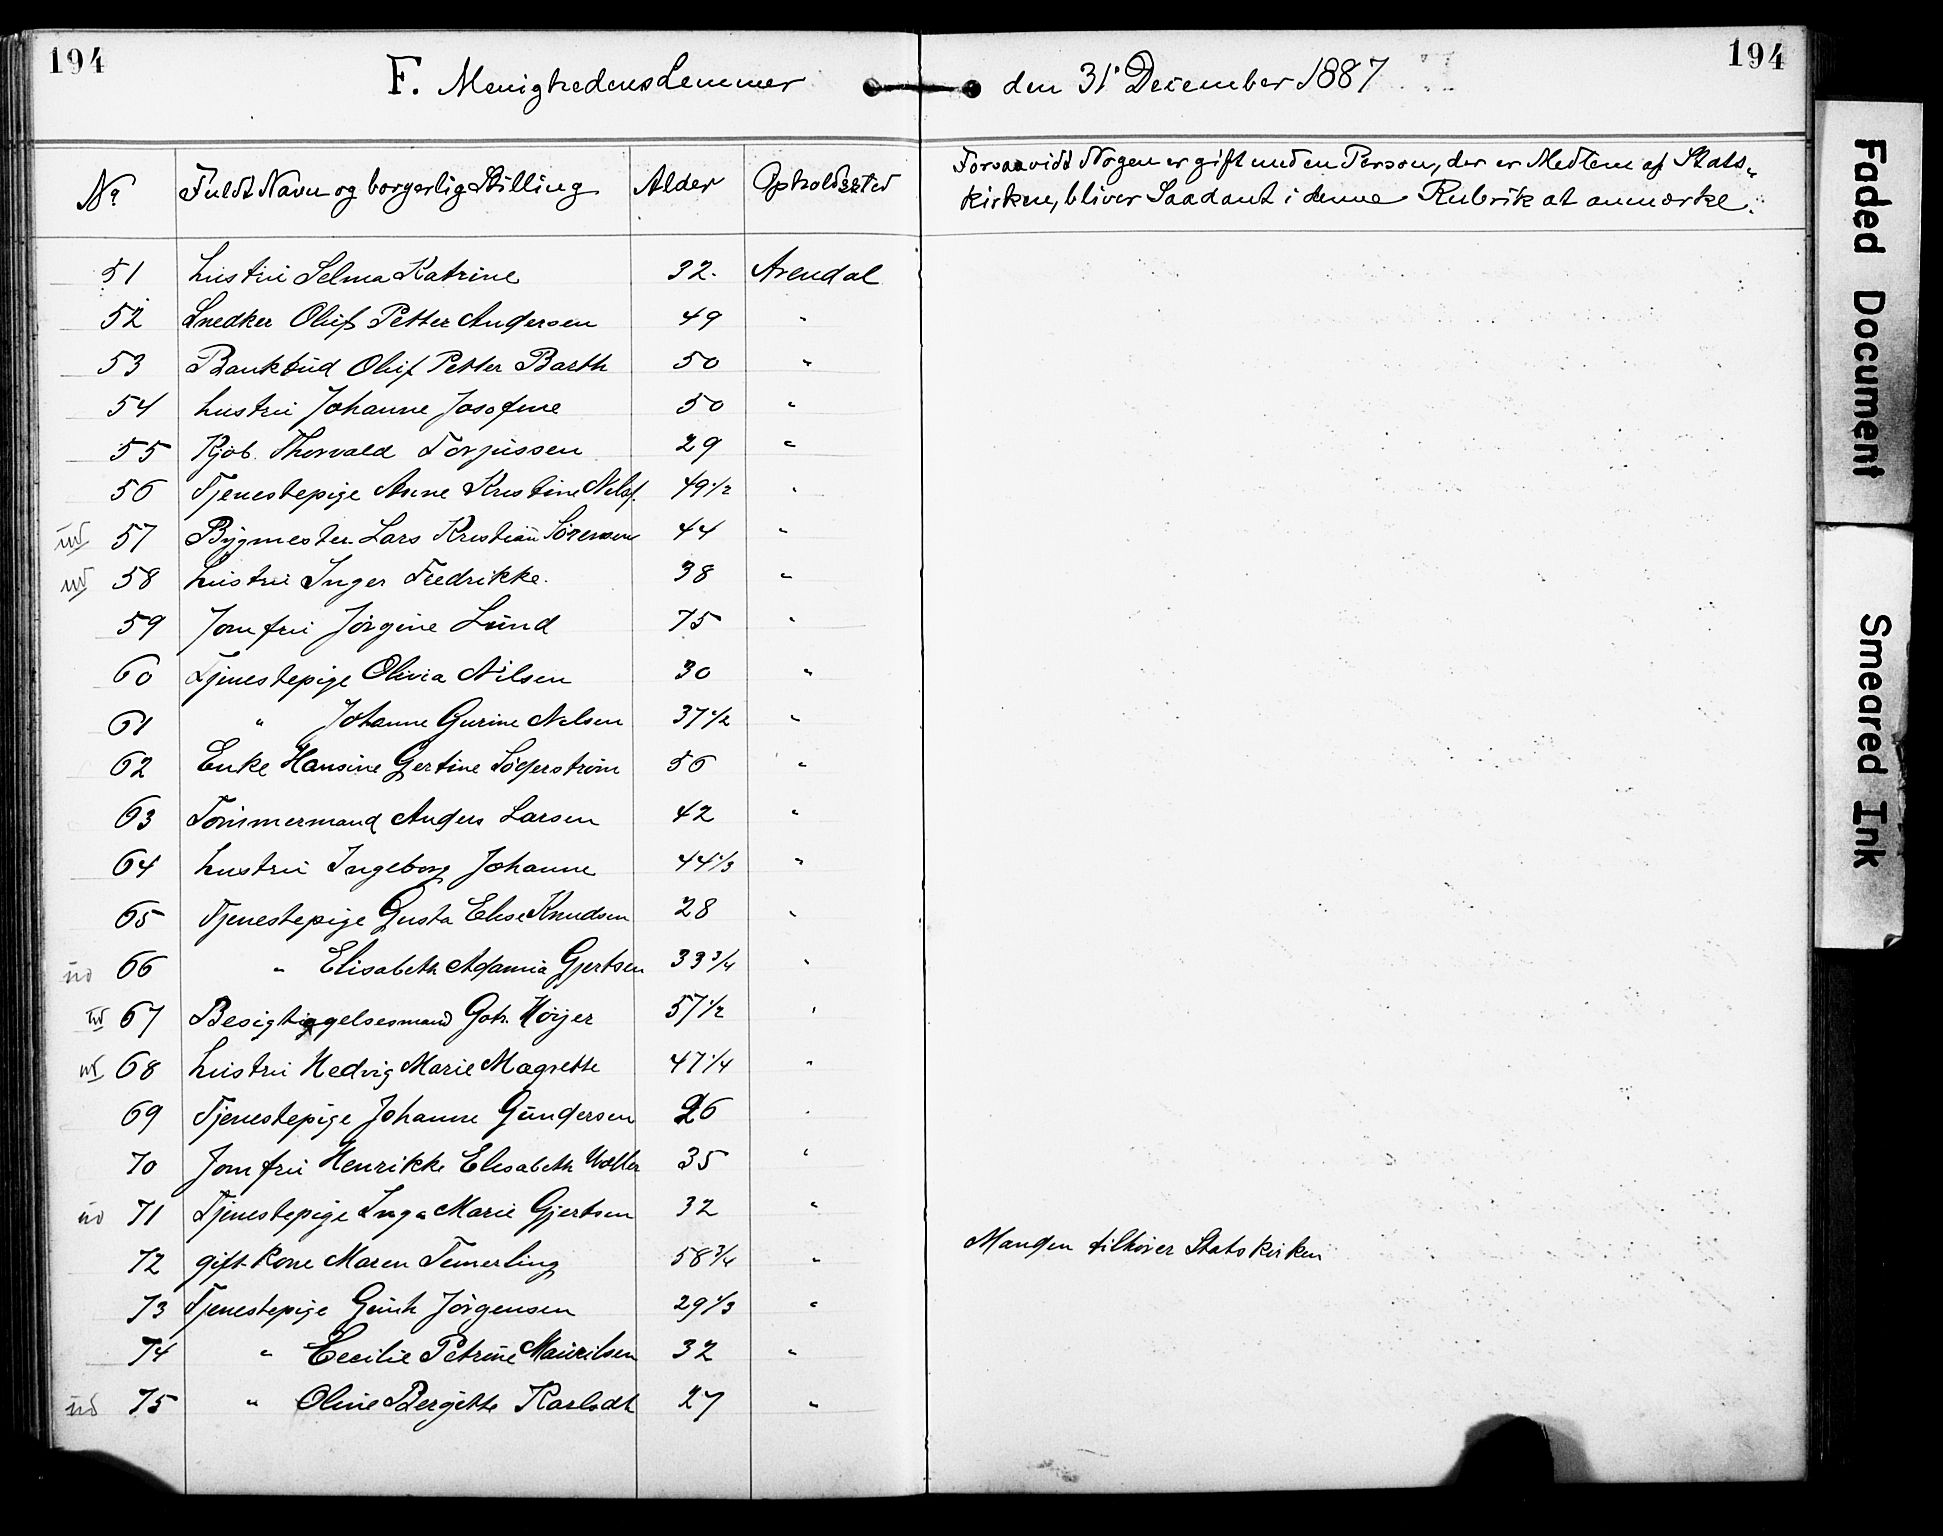 194
F. Menighedens Lemmer den 31' December 1887
194
No Fuldt Navn og borgerlig Stilling Alder Opholdssted Forsaavidt Nogen er gift med en Person, der er Medlem af Stats-
kirken, bliver Saadant i denne Rubrik at anmærke.
51 Hustru Selma Katrine 32. Arendal
52 Snedker Oluf Petter Andersen 49 "
53 Bankbud Oluf Petter Barth 50 "
54 Hustru Johanne Josofine 50 "
55 Kjøb. Thorvald Torjussen 29 "
56 Tjenestepige Anne Kristine Nilsf. 49 1/2 "
ud 57 Bygmester Lars Kristian Sørensen 44 "
ud 58 Hustru Inger Fredrikke. 38 "
59 Jomfru Jørgine Lund 75 "
60 Tjenestepige Olivia Nilsen 30 "
61 " Johanne Gurine Nilsen 37 1/2 "
62 Enke Hansine Gertine Söderström 56 "
63 Tømmermand Anders Larsen 42 "
64 Hustru Ingeborg Johanne 44 1/3 "
65 Tjenestepige Gusta Elise Knudsen 28 "
ud 66 " Elisabeth Adamia Gjertsen 33 3/4 "
ud 67 Besigtiggelsesmand Goth. Høyer 57 1/2 "
ud 68 Hustru Hedvig Marie Magrette 47 1/4 "
69 Tjenestepige Johanne Gundersen 26 "
70 Jomfru Henrikke Elisabeth 35 "
ud 71 Tjenestepige Inga Marie Gjertsen 32 "
72 gift Kone Maren Temerling 58 3/4 " Manden tilhører Statskirken
73 Tjenestepige Gunh Jörgensen 29 1/3 "
74 " Cecilie Petrine Mauritsen 32 "
ud 75 " Oline Bergitte Karlsdt 27 "
Faded Document
Smeared Ink